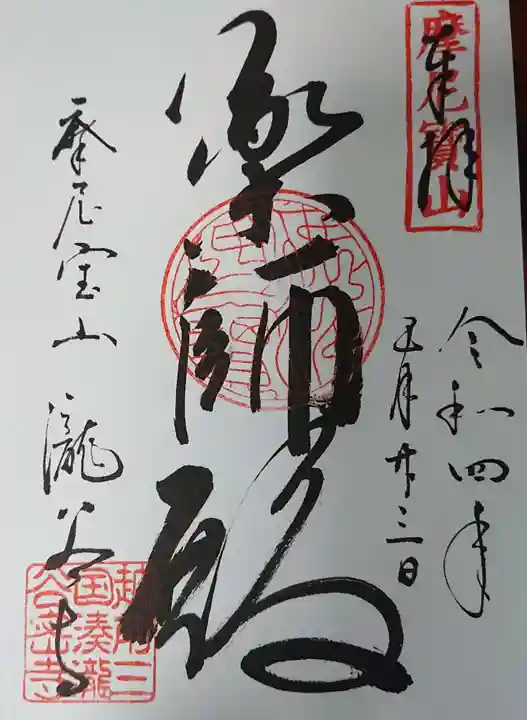 奉拝
摩尼寶山
令和四年
五月廿三日
薬師殿
摩尼宝山 瀧谷寺
越前三
国湊瀧
谷寺